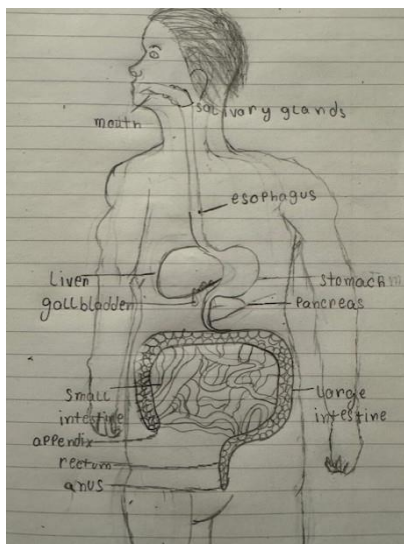 salivary glands
mouth
esophagus
liver
stomach
gallbladder
pancreas
small
intestine
large
intestine
appendix
rectum
anus